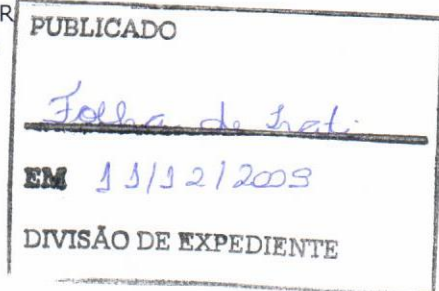 R
PUBLICADO
Folha de Irati.
EM 11/12/2009
DIVISÃO DE EXPEDIENTE